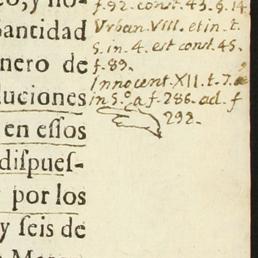 o, y no-
Santidad
nero de
luciones
en eſſos
diſpueſ-
por los
y ſeis de
f. 92. const. 43. §. 14.
Urban. VIII. et in. t.
5. in. 4. est const. 45.
f. 89.
Innocent. XII. t. 7. a
in 5.º a f. 286. ad. f
292.